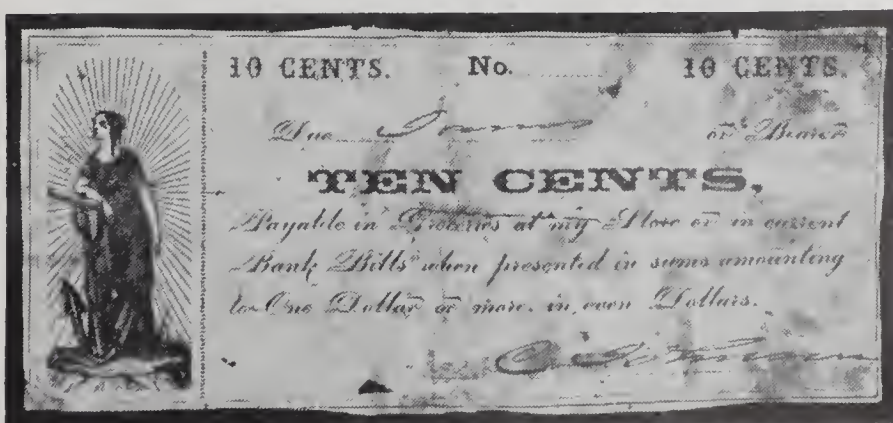 10 CENTS. No. 10 CENTS.
Due or Bearer
TEN CENTS,
Payable in Groceries at my Store or in current
Bank Bills when presented in sums amounting
to One Dollar or more, in even Dollars.